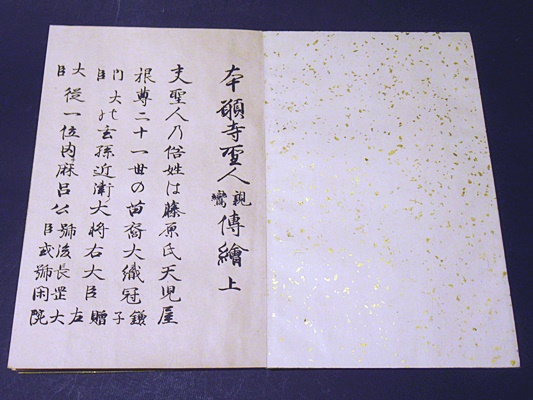 本願寺聖人親鸞傳繪 上
夫聖人乃俗姓は藤原氏天児屋
根尊二十一世の苗裔大織冠鎌子
内大臣の玄孫近衛大将右大臣贈左
大臣従一位内麻呂公號後長岡大臣或號閑院